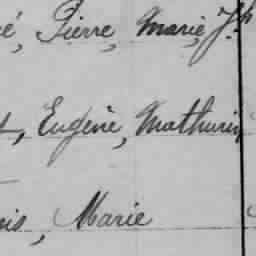 é, Pierre, Marie, Jh
t, Eugène, Mathurin
nis, Marie